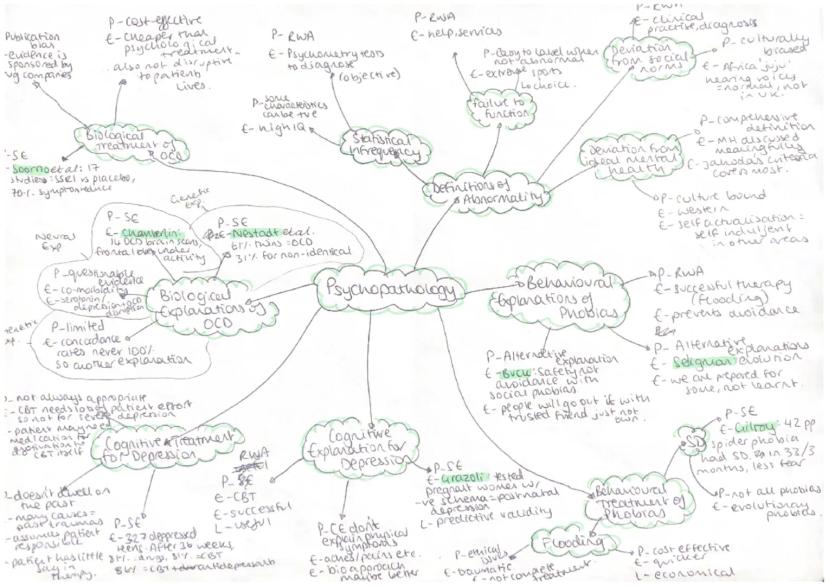 Psychopathology
Publication
bias
-evidence is
sponsored by
companies
P-cost-effective
E-cheaper than
psychological
treatment
also not disruptive
to patients
lives.
Biological
Treatment of
OCD
-SE
Soomro et al: 17
studies: SSRI vs placebo,
70% symptom reduce
P-RWA
E-Psychometry tests
to diagnose
(objective)
P-some
characteristics
can be +ve
E-high IQ
Statistical
Infrequency
P-RWA
E-help, services
P-Easy to label when
not abnormal
E-extreme sports
Failure to
function
P-RWA
E-clinical
practise, diagnosis
P-culturally
biased
E-Africa 'juju'
hearing voices
=normal, not
in UK.
Deviation
from social
norms
Definitions of
Abnormality
Deviation from
ideal mental
health
P-comprehensive
definition
E-MH discussed
meaningfully
E-Jahoda's criteria
covers most.
P-culture bound
E-western
E-self actualisation=
self indulgent
in other areas
Genetic
Exp.
Neural
Exp
P-SE
E-Chamberlin:
14 OCD brain scans,
frontal lobe under
activity
P-SE
E-Nestadt et al.
67% twins = OCD
31% for non-identical
P-questionable
evidence
E-co-morbidity
E-serotonin/
depression, OCD
disruption
P-limited
E-concordance
rates never 100%
so another explanation
Biological
Explanations of
OCD
Behavioural
Explanations of
Phobias
P-RWA
E-successful therapy
(flooding)
E-prevents avoidance
P-Alternative
explanations
E-Seligman evolution
E-we are prepared for
some, not learnt.
P-Alternative
explanation
E-Buck: safety not
avoidance with
social phobias
E-people will go out if with
trusted friend just not
own.
P-not always appropriate
CBT needs lots of patient effort
so not for severe depression
-patient may need
medication for
motivation for
CBT itself
Cognitive Treatment
for Depression
doesn't dwell on
the past
-many causes=
past traumas
-assumes patient
responsible
-patient has little
say in
therapy.
P-SE
E-327 depressed
teens. After 36 weeks,
81% = drug, 81% = CBT
86% = CBT + antidepressants
RWA
P-SE
E-CBT
E-successful
L-useful
Cognitive
Explanation for
Depression
P-CE don't
explain physical
symptoms
E-aches/pains etc.
E-bio approach
maybe better
P-SE
E-Grazoli tested
pregnant women w/
depression
-ve schema=postnatal
L-predictive validity
Behavioural
Treatment of
Phobias
SD
P-SE
E-Gilroy: 42pp
spider phobia
had SD. in 33/3
months, less fear
P-not all phobias
E-evolutionary
phobias.
Flooding
P-ethical
issues
E-traumatic
E-not complete
treatment.
P-cost effective
E-quicker
L-economical